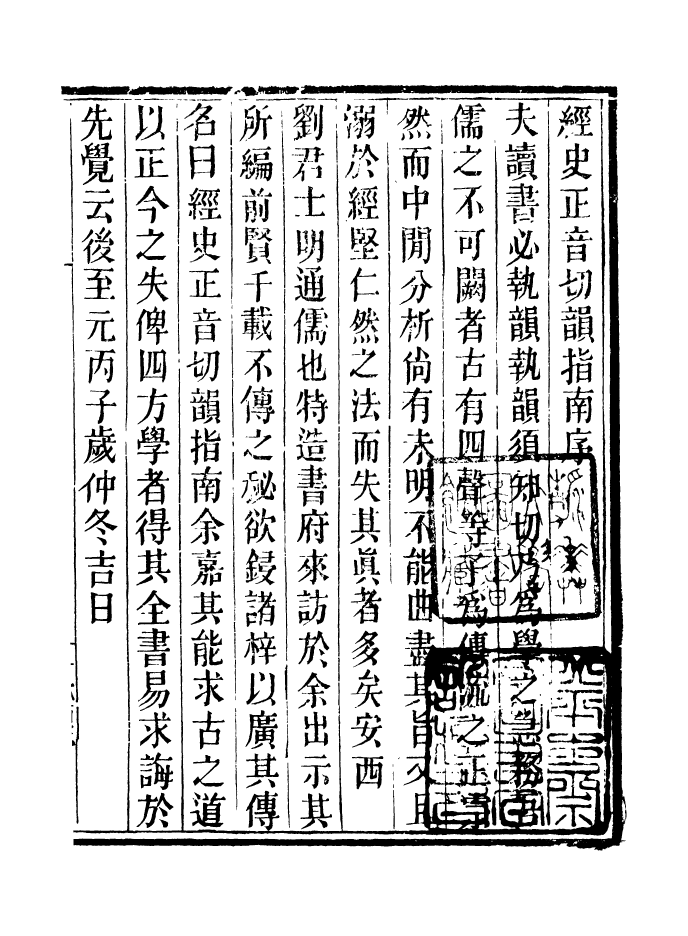 經史正音切韻指南序
夫讀書必執韻執韻須知切乃為學之急務吾
儒之不可闕者古有四聲等子為傳流之正宗
然而中閒分析尚有未明不能曲盡其旨又且
溺於經堅仁然之法而失其眞者多矣安西
劉君士明通儒也特造書府來訪於余出示其
所編前賢千載不傳之秘欲鋟諸梓以廣其傳
名曰經史正音切韻指南余嘉其能求古之道
以正今之失俾四方學者得其全書易求誨於
先覺云後至元丙子歲仲冬吉日